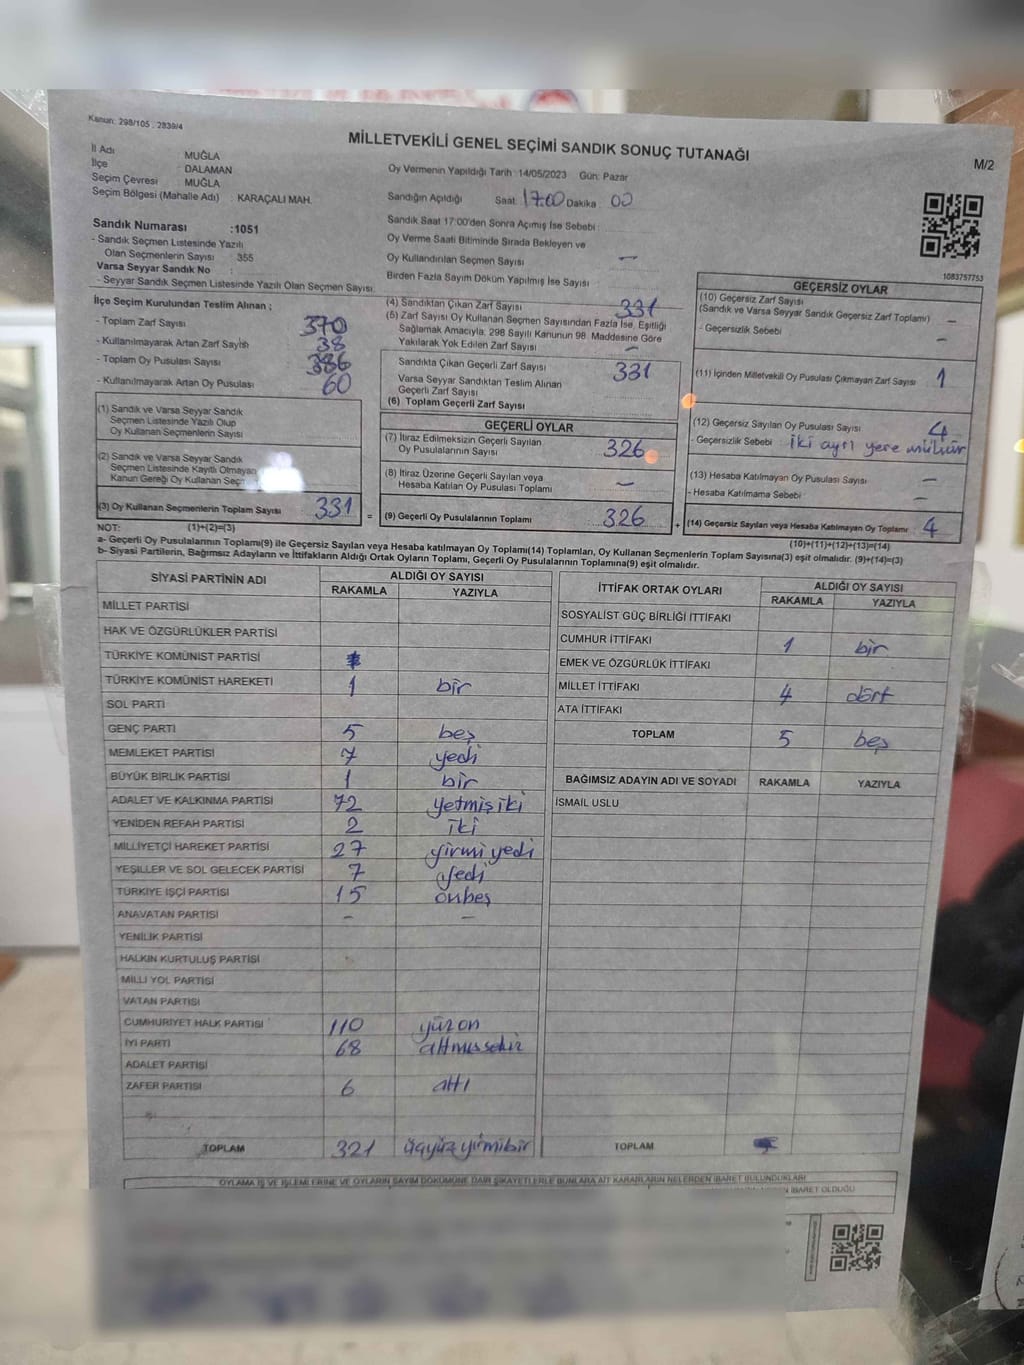 Kanun: 298/105 , 2839/4
MİLLETVEKİLİ GENEL SEÇİMİ SANDIK SONUÇ TUTANAĞI
M/2
İl Adı MUĞLA
İlçe : DALAMAN
Seçim Çevresi MUĞLA
Seçim Bölgesi (Mahalle Adı) : KARAÇALI MAH.
Oy Vermenin Yapıldığı Tarih : 14/05/2023 Gün: Pazar
Sandığın Açıldığı Saat: 17:00 Dakika : 00
Sandık Saat 17:00'den Sonra Açımış İse Sebebi :
Oy Verme Saati Bitiminde Sırada Bekleyen ve
Oy Kullandırılan Seçmen Sayısı —
Birden Fazla Sayım Döküm Yapılmış İse Sayısı
Sandık Numarası :1051
- Sandık Seçmen Listesinde Yazılı
Olan Seçmenlerin Sayısı 355
Varsa Seyyar Sandık No :
- Seyyar Sandık Seçmen Listesinde Yazılı Olan Seçmen Sayısı:
1083757753
İlçe Seçim Kurulundan Teslim Alınan ;
- Toplam Zarf Sayısı 370
- Kullanılmayarak Artan Zarf Sayısı 38
- Toplam Oy Pusulası Sayısı 386
- Kullanılmayarak Artan Oy Pusulası 60
(1) Sandık ve Varsa Seyyar Sandık
Seçmen Listesinde Yazılı Olup
Oy Kullanan Seçmenlerin Sayısı
(2) Sandık ve Varsa Seyyar Sandık
Seçmen Listesinde Kayıtlı Olmayan
Kanun Gereği Oy Kullanan
(3) Oy Kullanan Seçmenlerin Toplam Sayısı 331
(4) Sandıktan Çıkan Zarf Sayısı 331
(5) Zarf Sayısı Oy Kullanan Seçmen Sayısından Fazla İse, Eşitliği
Sağlamak Amacıyla; 298 Sayılı Kanunun 98. Maddesine Göre
Yakılarak Yok Edilen Zarf Sayısı —
Sandıkta Çıkan Geçerli Zarf Sayısı 331
Varsa Seyyar Sandıktan Teslim Alınan
Geçerli Zarf Sayısı
(6) Toplam Geçerli Zarf Sayısı
GEÇERLİ OYLAR
(7) İtiraz Edilmeksizin Geçerli Sayılan
Oy Pusulalarının Sayısı 326
(8) İtiraz Üzerine Geçerli Sayılan veya
Hesaba Katılan Oy Pusulası Toplamı —
= (9) Geçerli Oy Pusulalarının Toplamı 326
GEÇERSİZ OYLAR
(10) Geçersiz Zarf Sayısı
(Sandık ve Varsa Seyyar Sandık Geçersiz Zarf Toplamı) —
- Geçersizlik Sebebi —
(11) İçinden Milletvekili Oy Pusulası Çıkmayan Zarf Sayısı 1
(12) Geçersiz Sayılan Oy Pusulası Sayısı 4
- Geçersizlik Sebebi : iki ayrı yere mühür
(13) Hesaba Katılmayan Oy Pusulası Sayısı —
- Hesaba Katılmama Sebebi —
+ (14) Geçersiz Sayılan veya Hesaba Katılmayan Oy Toplamı 4
NOT: (1)+(2)=(3)
(10)+(11)+(12)+(13)=(14)
a- Geçerli Oy Pusulalarının Toplamı(9) ile Geçersiz Sayılan veya Hesaba katılmayan Oy Toplamı(14) Toplamları, Oy Kullanan Seçmenlerin Toplam Sayısına(3) eşit olmalıdır. (9)+(14)=(3)
b- Siyasi Partilerin, Bağımsız Adayların ve İttifakların Aldığı Ortak Oyların Toplamı, Geçerli Oy Pusulalarının Toplamına(9) eşit olmalıdır.
SİYASİ PARTİNİN ADI ALDIĞI OY SAYISI
RAKAMLA YAZIYLA
MİLLET PARTİSİ
HAK VE ÖZGÜRLÜKLER PARTİSİ
TÜRKİYE KOMÜNİST PARTİSİ
TÜRKİYE KOMÜNİST HAREKETİ 1 bir
SOL PARTİ
GENÇ PARTİ 5 beş
MEMLEKET PARTİSİ 7 yedi
BÜYÜK BİRLİK PARTİSİ 1 bir
ADALET VE KALKINMA PARTİSİ 72 yetmişiki
YENİDEN REFAH PARTİSİ 2 iki
MİLLİYETÇİ HAREKET PARTİSİ 27 yirmi yedi
YEŞİLLER VE SOL GELECEK PARTİSİ 7 yedi
TÜRKİYE İŞÇİ PARTİSİ 15 onbeş
ANAVATAN PARTİSİ - -
YENİLİK PARTİSİ
HALKIN KURTULUŞ PARTİSİ
MİLLİ YOL PARTİSİ
VATAN PARTİSİ
CUMHURİYET HALK PARTİSİ 110 yüzon
İYİ PARTİ 68 altmışsekiz
ADALET PARTİSİ
ZAFER PARTİSİ 6 altı
TOPLAM 321 üçyüzyirmibir
İTTİFAK ORTAK OYLARI ALDIĞI OY SAYISI
RAKAMLA YAZIYLA
SOSYALİST GÜÇ BİRLİĞİ İTTİFAKI
CUMHUR İTTİFAKI 1 bir
EMEK VE ÖZGÜRLÜK İTTİFAKI
MİLLET İTTİFAKI 4 dört
ATA İTTİFAKI
TOPLAM 5 beş
BAĞIMSIZ ADAYIN ADI VE SOYADI RAKAMLA YAZIYLA
İSMAİL USLU
TOPLAM
OYLAMA İŞ VE İŞLEMLERİNE VE OYLARIN SAYIM DÖKÜMÜNE DAİR ŞİKAYETLERLE BUNLARA AİT KARARLARIN NELERDEN İBARET BULUNDUKLARI
İBARET OLDUĞU